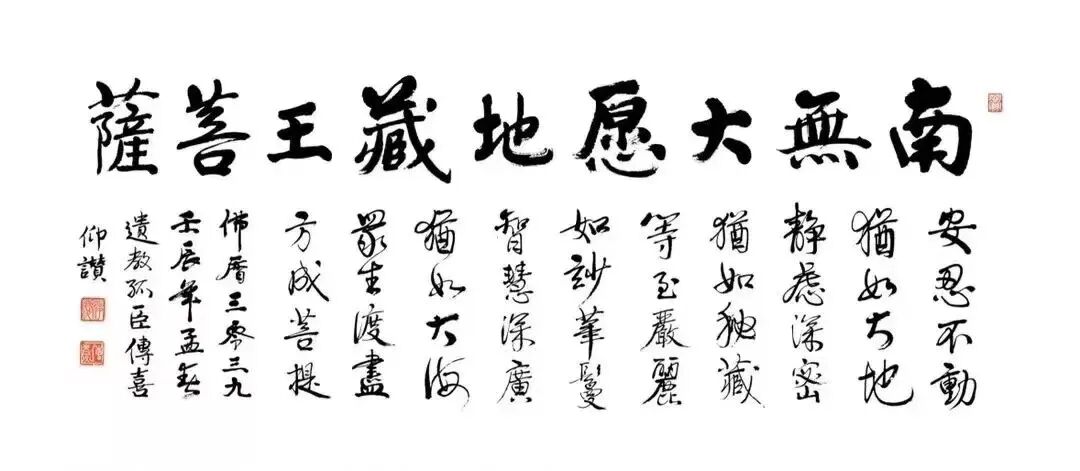 南無大愿地藏王菩薩
安忍不動
猶如大地
静慮深密
猶如秘藏
等至嚴麗
如妙華鬘
智慧深廣
猶如大海
眾生渡盡
方成菩提
佛曆三零三九
壬辰年孟春
遺教孤臣傳喜
仰讚